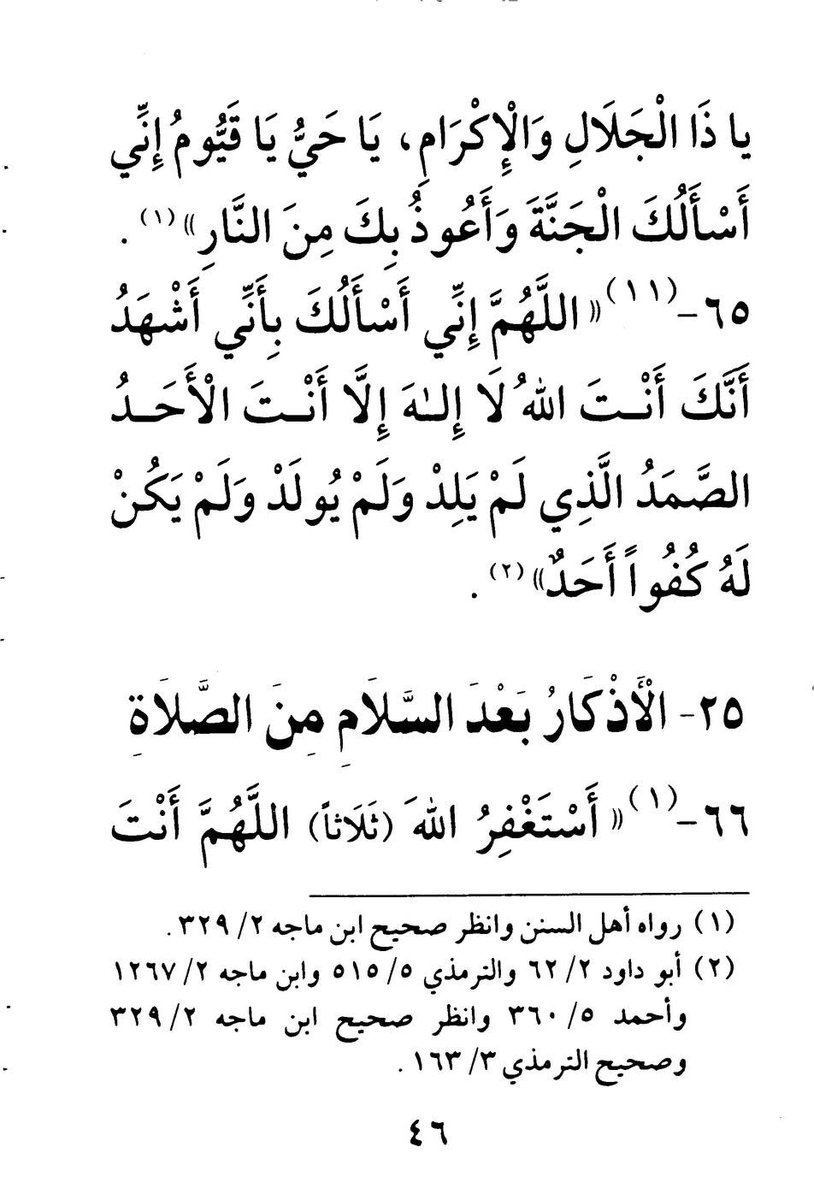 يا ذَا الْجَلَالِ وَالْإِكْرَامِ، يَا حَيُّ يَا قَيُّومُ إِنِّي
أَسْأَلُكَ الْجَنَّةَ وَأَعُوذُ بِكَ مِنَ النَّارِ»(١) .
٦٥-(١١)«اللَّهُمَّ إِنِّي أَسْأَلُكَ بِأَنِّي أَشْهَدُ
أَنَّكَ أَنْتَ اللهُ لَا إِلَهَ إِلَّا أَنْتَ الْأَحَدُ
الصَّمَدُ الَّذِي لَمْ يَلِدْ وَلَمْ يُولَدْ وَلَمْ يَكُنْ
لَهُ كُفُواً أَحَدٌ»(٢) .
٢٥- الْأَذْكَارُ بَعْدَ السَّلَامِ مِنَ الصَّلَاةِ
٦٦-(١)«أَسْتَغْفِرُ اللهَ (ثَلَاثاً) اللَّهُمَّ أَنْتَ
(١) رواه أهل السنن وانظر صحيح ابن ماجه ٢/ ٣٢٩ .
(٢) أبو داود ٢/ ٦٢ والترمذي ٥/ ٥١٥ وابن ماجه ٢/ ١٢٦٧
وأحمد ٥/ ٣٦٠ وانظر صحيح ابن ماجه ٢/ ٣٢٩
وصحيح الترمذي ٣/ ١٦٣ .
٤٦